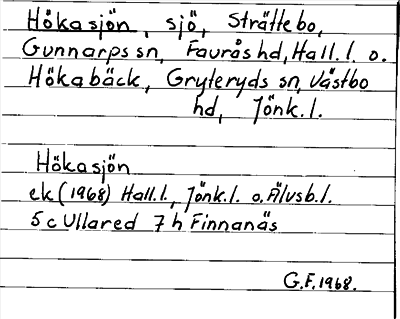 Hökasjön, sjö, Strättebo,
Gunnarps sn, Faurås hd, Hall. l. o.
Hökabäck, Gryteryds sn, Västbo
hd, Jönk. l.
Hökasjön
ek (1968) Hall. l., Jönk. l. o. Älvsb. l.
5 c Ullared 7 h Finnanäs
G. F. 1968.